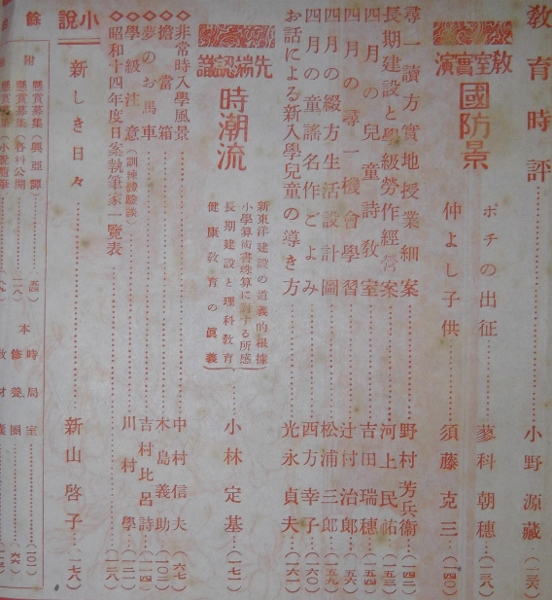 教育時評 小野源藏
教室實演 國防景
ポチの出征 蓼科朝穗 (一三八)
仲よし子供 須藤克三 (一四〇)
尋一讀方實地授業細案 野村芳兵衞 (一四二)
長期建設と學級勞作經營案 河上民祐 (一五三)
四月の兒童詩教室 吉田瑞穗 (一五四)
四月の尋一機會學習 辻村治郞 (一五六)
四月の綴方生活設計圖 松浦三郞 (一五九)
四月の童謠名作ごよみ 西方幸子 (一六〇)
お話による新入學兒童の導き方 光永貞夫 (一六一)
先端認識 時潮流
新東洋建設の道義的根據
小學算術書珠算に對する所感
長期建設と理科教育
健康教育の眞義
小林定基 (一七一)
◇非常時入學風景 中村信夫 (六七)
◇擔當箱 木島義助 (一〇二)
◇夢のお馬車 吉村比呂詩 (一一四)
◇學級注意(訓練體驗談) 川村學 (一二一)
◇昭和十四年度日案執筆家一覽表 (一二八)
小說 新しき日々 新山啓子 (一七八)
餘
附
懸賞募集(興亞譚)
懸賞募集(各科公開
本
時局室 (一〇一)
修養園 (六六)